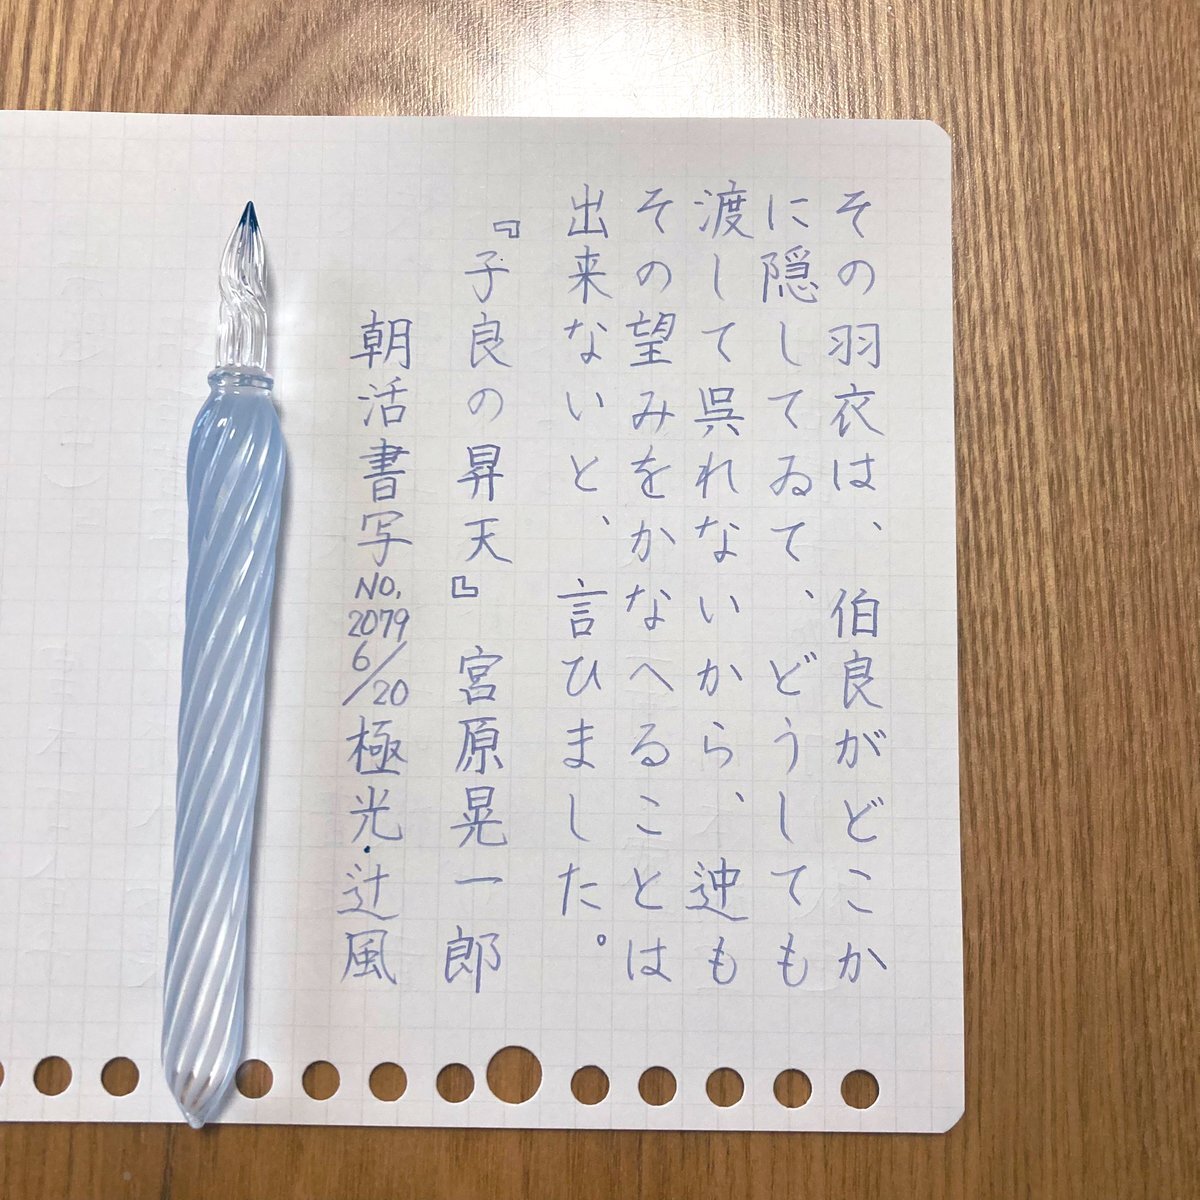 その羽衣は、伯良がどこか
に隠してゐて、どうしても
渡して呉れないから、迚も
その望みをかなへることは
出来ないと、言ひました。
『子良の昇天』宮原晃一郎
朝活書写NO.2079 6/20 極光・辻風